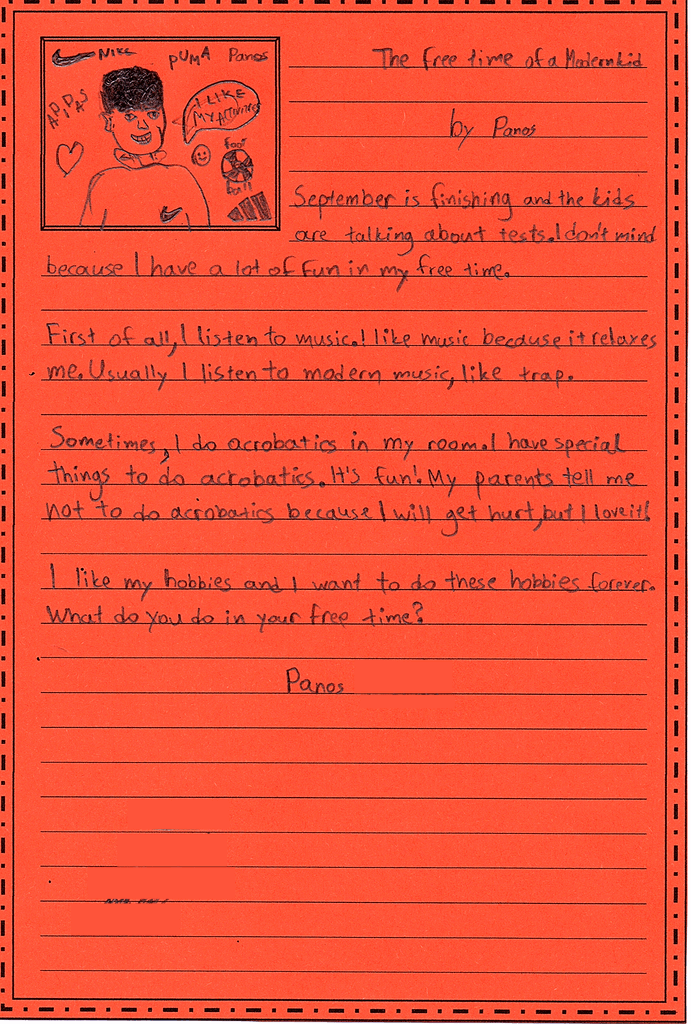 NIKE
PUMA
Panos
APIPAS
I LIKE
MY ACTIVITIES
foot
ball
The free time of a Modern kid
by Panos
September is finishing and the kids
are talking about tests. I don't mind
because I have a lot of fun in my free time.
First of all, I listen to music. I like music because it relaxes
me. Usually I listen to modern music, like trap.
Sometimes, I do acrobatics in my room. I have special
things to do acrobatics. It's fun! My parents tell me
not to do acrobatics because I will get hurt, but I love it!
I like my hobbies and I want to do these hobbies forever.
What do you do in your free time?
Panos